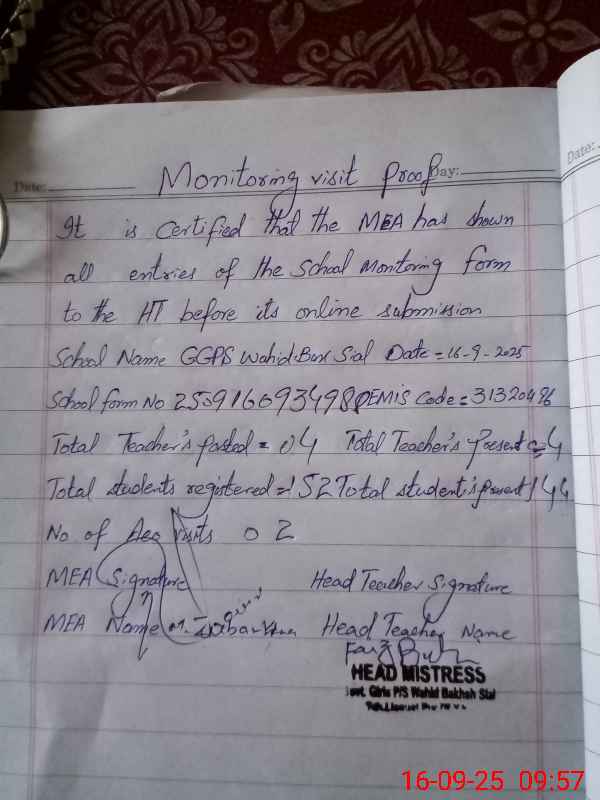 Date:
Day:
Date:
Monitoring visit proof
It is certified that the MEA has shown
all entries of the school Monitoring form
to the HT before its online submission
School Name GGPS Wahid Bux Sial Date = 16-9-2025
School form No EMIS Code = 31320496
Total Teacher's posted = 04 Total Teacher's Present = 4
Total students registered = 152 Total student's present 144
No of Aeo visits 02
MEA Signature Head Teacher Signature
MEA Name M. Head Teacher Name
HEAD MISTRESS
Govt. Girls P/S Wahid Bakhsh Sial
16-09-25 09:57